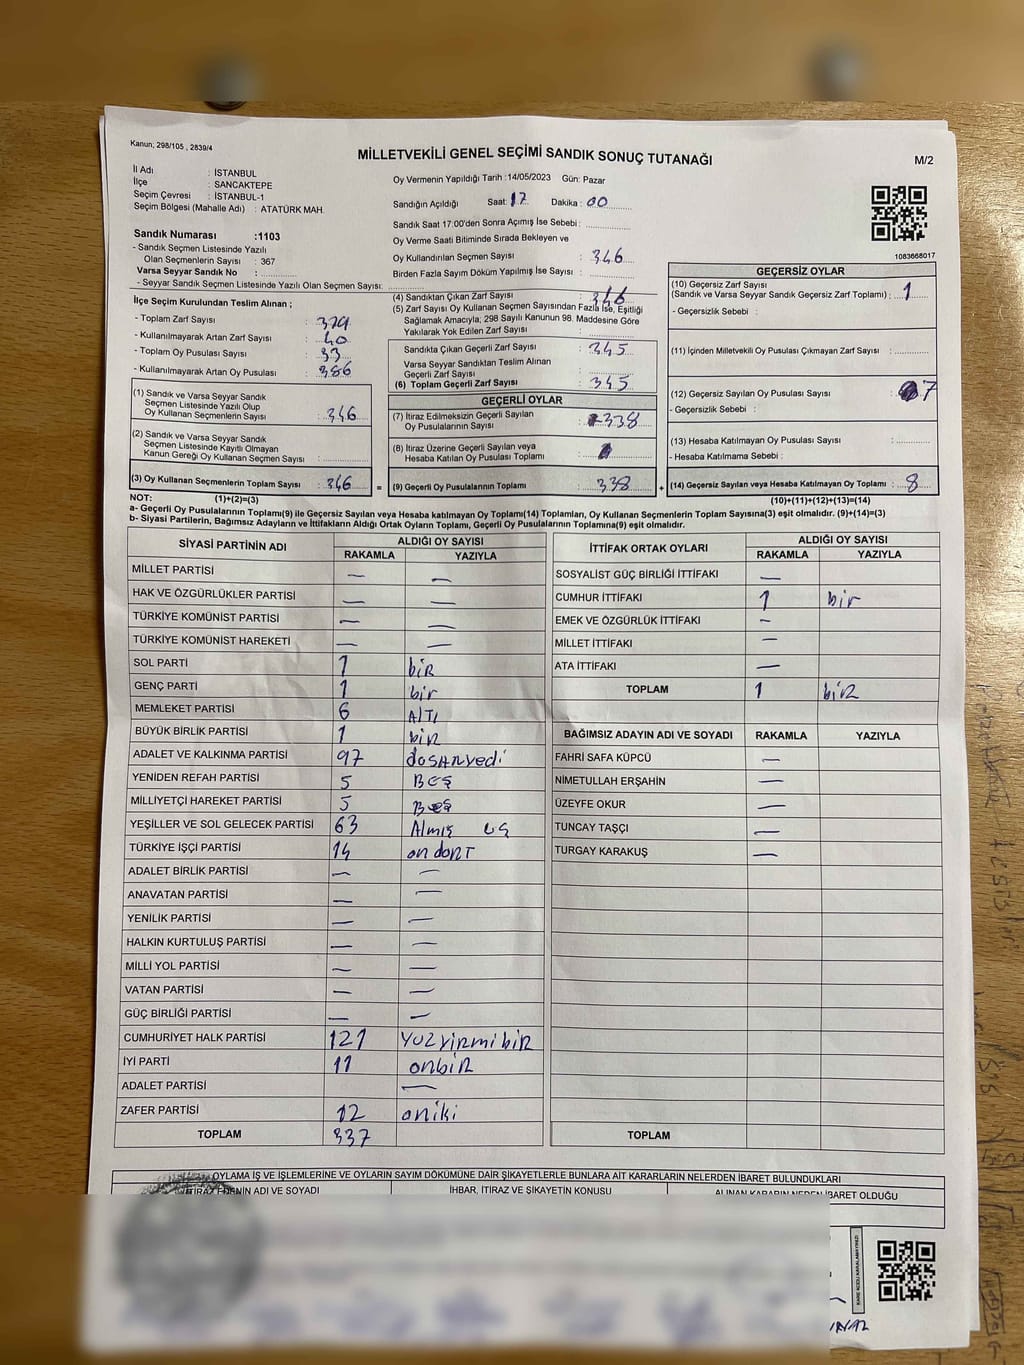 Kanun; 298/105 , 2839/4
MİLLETVEKİLİ GENEL SEÇİMİ SANDIK SONUÇ TUTANAĞI
M/2
İl Adı : İSTANBUL
İlçe : SANCAKTEPE
Seçim Çevresi : İSTANBUL-1
Seçim Bölgesi (Mahalle Adı) : ATATÜRK MAH.
Sandık Numarası :1103
- Sandık Seçmen Listesinde Yazılı
Olan Seçmenlerin Sayısı : 367
Varsa Seyyar Sandık No :
- Seyyar Sandık Seçmen Listesinde Yazılı Olan Seçmen Sayısı:
Oy Vermenin Yapıldığı Tarih :14/05/2023 Gün: Pazar
Sandığın Açıldığı Saat: 17 Dakika : 00
Sandık Saat 17:00'den Sonra Açımış İse Sebebi :
Oy Verme Saati Bitiminde Sırada Bekleyen ve
Oy Kullandırılan Seçmen Sayısı : 346
Birden Fazla Sayım Döküm Yapılmış İse Sayısı :
1083668017
İlçe Seçim Kurulundan Teslim Alınan ;
- Toplam Zarf Sayısı :
- Kullanılmayarak Artan Zarf Sayısı : 40
- Toplam Oy Pusulası Sayısı :
- Kullanılmayarak Artan Oy Pusulası : 386
(1) Sandık ve Varsa Seyyar Sandık
Seçmen Listesinde Yazılı Olup
Oy Kullanan Seçmenlerin Sayısı : 346
(2) Sandık ve Varsa Seyyar Sandık
Seçmen Listesinde Kayıtlı Olmayan
Kanun Gereği Oy Kullanan Seçmen Sayısı :
(3) Oy Kullanan Seçmenlerin Toplam Sayısı : 346
=
(4) Sandıktan Çıkan Zarf Sayısı : 346
(5) Zarf Sayısı Oy Kullanan Seçmen Sayısından Fazla İse, Eşitliği
Sağlamak Amacıyla; 298 Sayılı Kanunun 98. Maddesine Göre
Yakılarak Yok Edilen Zarf Sayısı :
Sandıkta Çıkan Geçerli Zarf Sayısı : 345
Varsa Seyyar Sandıktan Teslim Alınan
Geçerli Zarf Sayısı :
(6) Toplam Geçerli Zarf Sayısı : 345
GEÇERLİ OYLAR
(7) İtiraz Edilmeksizin Geçerli Sayılan
Oy Pusulalarının Sayısı : 338
(8) İtiraz Üzerine Geçerli Sayılan veya
Hesaba Katılan Oy Pusulası Toplamı :
(9) Geçerli Oy Pusulalarının Toplamı : 338
+
GEÇERSİZ OYLAR
(10) Geçersiz Zarf Sayısı
(Sandık ve Varsa Seyyar Sandık Geçersiz Zarf Toplamı) : 1
- Geçersizlik Sebebi :
(11) İçinden Milletvekili Oy Pusulası Çıkmayan Zarf Sayısı :
(12) Geçersiz Sayılan Oy Pusulası Sayısı : 7
- Geçersizlik Sebebi :
(13) Hesaba Katılmayan Oy Pusulası Sayısı :
- Hesaba Katılmama Sebebi :
(14) Geçersiz Sayılan veya Hesaba Katılmayan Oy Toplamı : 8
NOT: (1)+(2)=(3)
(10)+(11)+(12)+(13)=(14)
a- Geçerli Oy Pusulalarının Toplamı(9) ile Geçersiz Sayılan veya Hesaba katılmayan Oy Toplamı(14) Toplamları, Oy Kullanan Seçmenlerin Toplam Sayısına(3) eşit olmalıdır. (9)+(14)=(3)
b- Siyasi Partilerin, Bağımsız Adayların ve İttifakların Aldığı Ortak Oyların Toplamı, Geçerli Oy Pusulalarının Toplamına(9) eşit olmalıdır.
SİYASİ PARTİNİN ADI ALDIĞI OY SAYISI
RAKAMLA YAZIYLA
MİLLET PARTİSİ — —
HAK VE ÖZGÜRLÜKLER PARTİSİ — —
TÜRKİYE KOMÜNİST PARTİSİ — —
TÜRKİYE KOMÜNİST HAREKETİ — —
SOL PARTİ 1 biR
GENÇ PARTİ 1 bir
MEMLEKET PARTİSİ 6 AlTı
BÜYÜK BİRLİK PARTİSİ 1 biR
ADALET VE KALKINMA PARTİSİ 97 doSANyedi
YENİDEN REFAH PARTİSİ 5 BEŞ
MİLLİYETÇİ HAREKET PARTİSİ 5 BEŞ
YEŞİLLER VE SOL GELECEK PARTİSİ 63 Almış üç
TÜRKİYE İŞÇİ PARTİSİ 14 on dönT
ADALET BİRLİK PARTİSİ — —
ANAVATAN PARTİSİ — —
YENİLİK PARTİSİ — —
HALKIN KURTULUŞ PARTİSİ — —
MİLLİ YOL PARTİSİ — —
VATAN PARTİSİ — —
GÜÇ BİRLİĞİ PARTİSİ — —
CUMHURİYET HALK PARTİSİ 121 YÜZ YİRMİ biR
İYİ PARTİ 11 onbiR
ADALET PARTİSİ —
ZAFER PARTİSİ 12 oniki
TOPLAM 337
İTTİFAK ORTAK OYLARI ALDIĞI OY SAYISI
RAKAMLA YAZIYLA
SOSYALİST GÜÇ BİRLİĞİ İTTİFAKI —
CUMHUR İTTİFAKI 1 bir
EMEK VE ÖZGÜRLÜK İTTİFAKI —
MİLLET İTTİFAKI —
ATA İTTİFAKI —
TOPLAM 1 biR
BAĞIMSIZ ADAYIN ADI VE SOYADI RAKAMLA YAZIYLA
FAHRİ SAFA KÜPCÜ —
NİMETULLAH ERŞAHİN —
ÜZEYFE OKUR —
TUNCAY TAŞÇI —
TURGAY KARAKUŞ —
TOPLAM
OYLAMA İŞ VE İŞLEMLERİNE VE OYLARIN SAYIM DÖKÜMÜNE DAİR ŞİKAYETLERLE BUNLARA AİT KARARLARIN NELERDEN İBARET BULUNDUKLARI
İTİRAZ EDENİN ADI VE SOYADI İHBAR, İTİRAZ VE ŞİKAYETİN KONUSU ALINAN KARARIN NEDEN İBARET OLDUĞU
KARE KODU KARALAMAYINIZ!